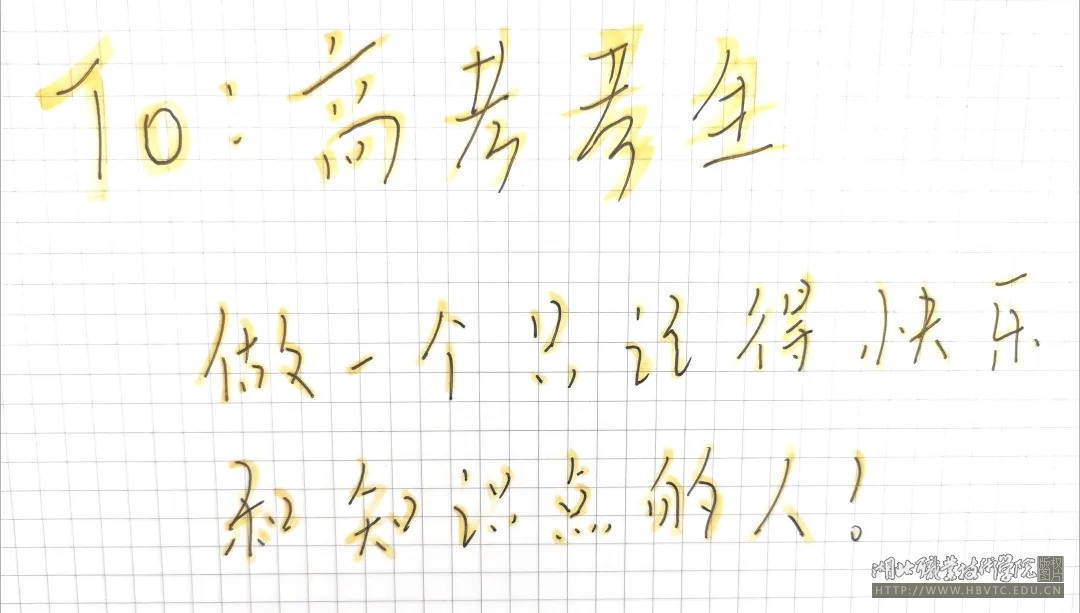 To:高考考生
做一个只记得快乐
和知识点的人!
湖北职业技术学院 版权图片
HTTP://WWW.HBVTC.EDU.CN